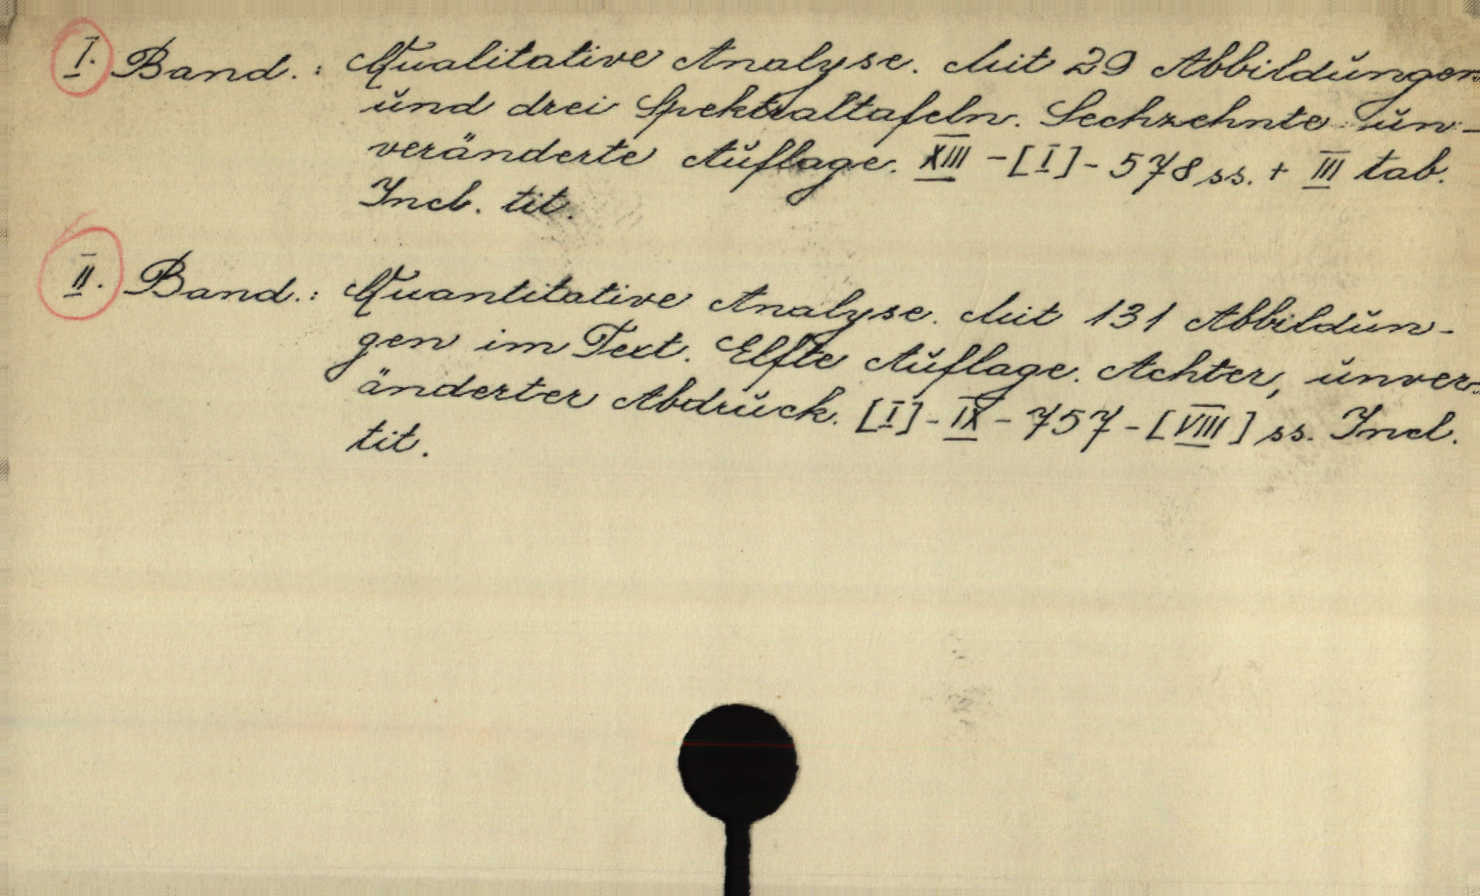 I. Band.: Qualitative Analyse. Mit 29 Abbildungen
und drei Spektraltafeln. Sechzehnte un-
veränderte Auflage. XIII - [I] - 578 ss. + III tab.
Incl. tit.
II. Band.: Quantitative Analyse. Mit 131 Abbildun-
gen im Text. Elfte Auflage. Achter, unver-
änderter Abdruck. [I] - IX - 757 - [VIII] ss. Incl.
tit.